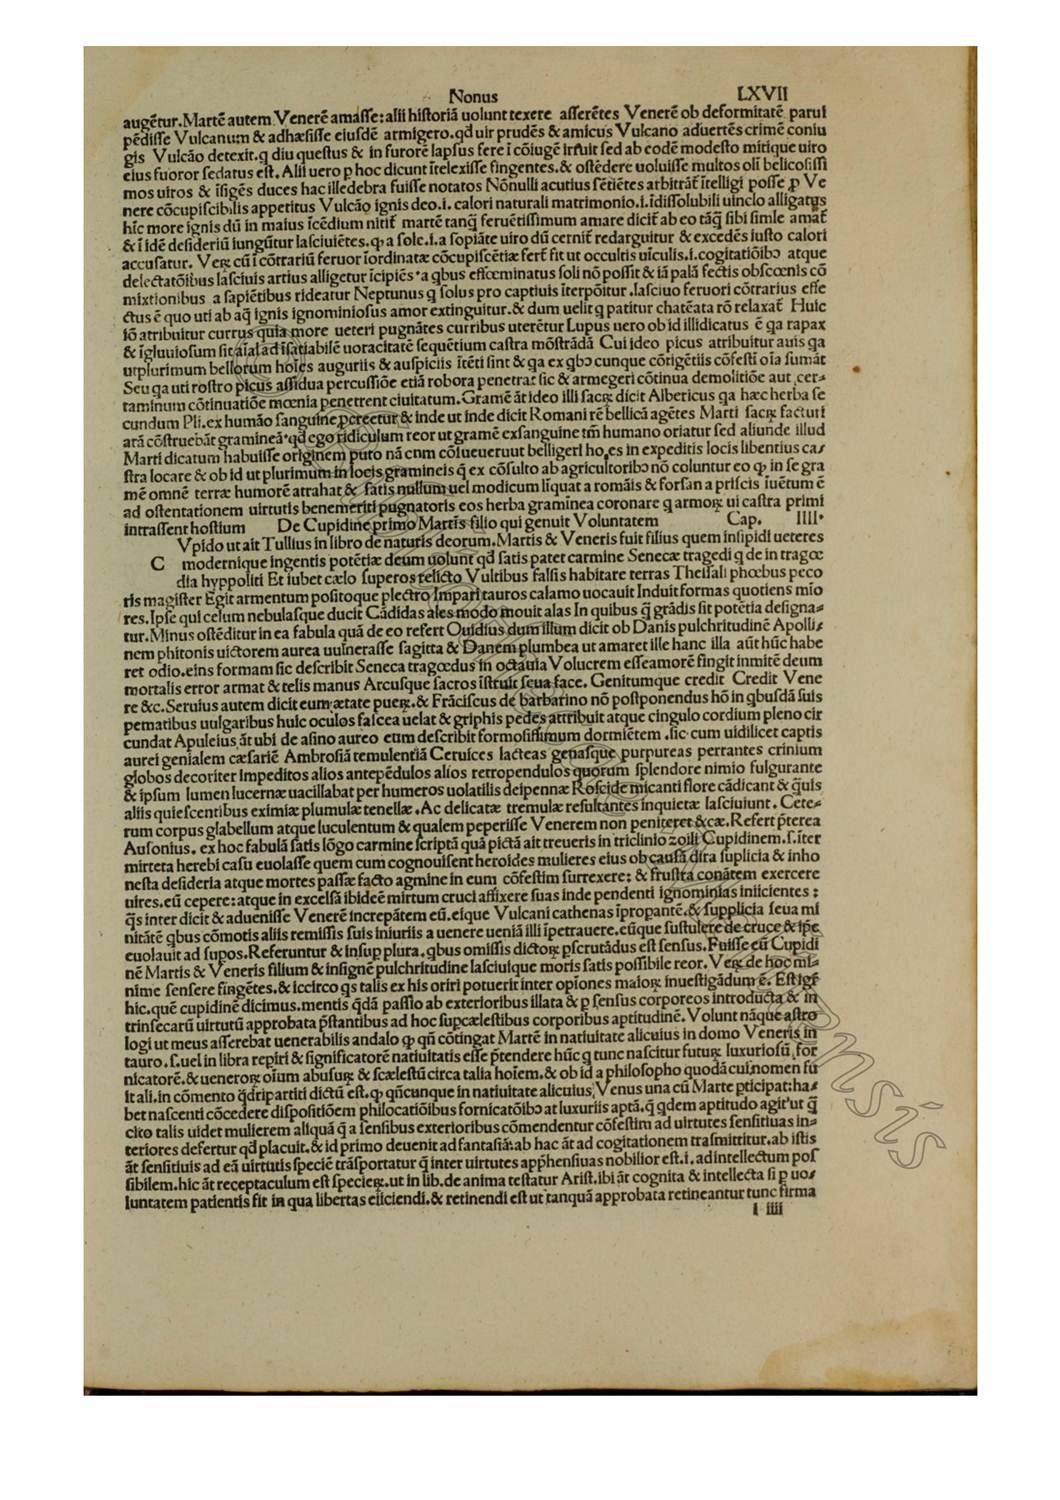 Nonus LXVII
augētur. Martē autem Venerē amasse: alii historiā uolunt texere asserētes Venerē ob deformitatē parui
pēdisse Vulcanum & adhæsisse eiusdē armigero. qđ uir prudēs & amicus Vulcano aduertēs crimē coniu
gis Vulcāo detexit. q diu questus & in furorē lapsus fere ī cōiugē irruit sed ab eodē modesto mitique uiro
eius fuoror sedatus est. Alii uero p hoc dicunt ītelexisse fingentes. & ostēdere uoluisse multos oli belicosissi
mos uiros & īsigēs duces hac illedebra fuisse notatos Nōnulli acutius sētiētes arbitrāt̄ ītelligi posse ꝑ Ve
nere cōcupiscibilis appetitus Vulcāo ignis deo. i. calori naturali matrimonio. i. īdissolubili uinclo alligatus
hīc more ignis dū in maius īcēdium nitit̄ martē tanq̄ feruētissimum amare dicit̄ ab eo tāq̄ sibi simle amat̄
& ī idē desideriū iungūtur lasciuiētes. ꝙ a sole. i. a sopiāte uiro dū cernit̄ redarguitur & excedēs iusto calori
accusatur. Veꝝ cū ī cōtrariū feruor īordinatæ cōcupiscētiæ fert̄ fit ut occultis uiculis. i. cogitatiōibꝰ atque
delectatōibus lasciuis artius alligetur īcipiēs. a qbus effœminatus soli nō possit & iā palā fectis obscœnis cō
mixtionibus a sapiētibus rideatur Neptunus q solus pro captiuis īterpōitur. lasciuo feruori cōtrarius effe
ctus ē quo uti ab aq̄ ignis ignominiosus amor extinguitur. & dum uelit q patitur chatēata rō relaxat̄ Huic
iō atribuitur currus quia more ueteri pugnātes curribus uterētur Lupus uero ob id illidicatus ē ga rapax
& īgluuiosum sit aīal ad īsatiabilē uoracitatē sequētium castra mōstrādā Cui ideo picus atribuitur auis ga
utplurimum bellorum hoīes auguriis & auspiciis itēti sint & ga ex qbꝰ cunque cōtigētiis cōfesti oīa sumāt
Seu ga uti rostro picus assidua percussiōe etiā robora penetrat sic & armegeri cōtinua demolitiōe aut cer-
taminum cōtinuatiōe mœnia penetrent ciuitatum. Gramē āt ideo illi sacꝝ dicit Albericus ga hæc herba se
cundum Pli. ex humāo sanguine pcreetur & inde ut inde dicit Romani rē bellicā agētes Marti sacꝝ facturi
arā cōstruebāt gramineā. qđ ego ridiculum reor ut gramē exsanguine tm̄ humano oriatur sed aliunde illud
Marti dicatum habuisse originem puto nā cnm cōsueuerunt belligeri hoes in expeditis locis libentius ca-
stra locare & ob id ut plurimum in locis gramineis q̄ ex cōsulto ab agricultoribꝰ nō coluntur eo ꝙ in se gra
mē omnē terræ humorē atrahat & satis nullum uel modicum līquat a romāis & forsan a priscis iuētum ē
ad ostentationem uirtutis benemeriti pugnatoris eos herba graminea coronare q armoꝝ ui castra primi
intrassent hostium De Cupidine primo Martis filio qui genuit Voluntatem Cap. IIII.
Vpido ut ait Tullius in libro de naturis deorum. Martis & Veneris fuit filius quem insipidi ueteres
C modernique ingentis potētiæ deum uolunt qđ satis patet carmine Senecæ tragedi q de in tragœ
dia hyppoliti Et iubet cælo superos relicto Vultibus falsis habitare terras Thessali phœbus peco
ris magister Egit armentum positoque plectro Impari tauros calamo uocauit Induit formas quotiens mio
res. Ipse qui celum nebulasque ducit Cādidas ales modo mouit alas In quibus q̄ grādis sit potētia designa-
tur. Minus ostēditur in ea fabula quā de eo refert Ouidius dum illum dicit ob Danis pulchritudinē Apolli-
nem phitonis uictorem aurea uulnerasse sagitta & Danem plumbea ut amaret ille hanc illa aūt hūc habe
ret odio. eins formam sic describit Seneca tragœdus in octauia Volucrem esseamorē fingit inmitē deum
mortalis error armat & telis manus Arcusque sacros īstruit seua face. Genitumque credit Credit Vene
re &c. Seruius autem dicit eum ætate pueꝝ. & Frāciscus de barbarino nō postponendus hō in qbusdā suis
pematibus uulgaribus huic oculos fascea uelat & griphis pedes attribuit atque cingulo cordium pleno cir
cundat Apuleius āt ubi de asino aureo eum describit formosissimum dormiētem. sic. cum uidilicet captis
aurei genialem cæsariē Ambrosiā temulentiā Ceruices lacteas genasque purpureas perrantes crinium
globos decoriter Impeditos alios antepēdulos alios retropendulos quorum splendore nimio fulgurante
& īpsum lumen lucernæ uacillabat per humeros uolatilis deipennæ Roscide micanti flore cādicant & q̄uis
aliis quiescentibus eximiæ plumulæ tenellæ. Ac delicatæ tremulæ resultantes inquietæ lasciuiunt. Cete-
rum corpus glabellum atque luculentum & qualem peperisse Venerem non peniteret &cæ. Refert p̄terea
Ausonius. ex hoc fabulā satis lōgo carmine scriptā quā pictā ait treueris in triclinio zoili Cupidinem. s. iter
mirteta herebi casu euolasse quem cum cognouisent heroides mulieres eius ob causā dira suplicia & inho
nesta desideria atque mortes passæ facto agmine in eum cōfestim surrexere: & frustra conātem exercere
uires. eū cepere: atque in excelsā ibideē mirtum cruci affixere suas inde pendenti ignominias iniicientes:
q̄s inter dicit & aduenisse Venerē increpātem eū. eique Vulcani cathenas īpropantē. & supplicia seua mi
nitātē qbus cōmotis aliis remissis suis iniuriis a uenere ueniā illi īpetrauere. eūque sustulere de cruce & ip̄e
euolauit ad supos. Referuntur & insup plura. qbus omissis dictoꝝ pscrutādus est sensus. Fuisse eū Cupidi
nē Martis & Veneris filium & insignē pulchritudine lasciuique moris satis possibile reor. Veꝝ de hoc mi-
nime sensere fingētes. & iccirco qs talis ex his oriri potuerit inter opīones maioꝝ inuestigādum ē. Est igr̄
hic. quē cupidinē dicimus. mentis q̄dā passio ab exterioribus illata & ꝑ sensus corporeos introducta & in
trinsecarū uirtutū approbata p̄stantibus ad hoc supcælestibus corporibus aptitudinē. Volunt nāque astro
logi ut meus asserebat uenerabilis andalo ꝙ qn̄ cōtingat Martē in natiuitate alicuius in domo Veneris in
tauro. s. uel in libra repiri & significatorē natiuitatis esse p̄tendere hūc q tunc nascitur futuꝝ luxuriosū for
nicatorē. & ueneroꝝ oīum abusuꝝ & scælestū circa talia hoīem. & ob id a philosopho quodā cui nomen fu
it ali. in cōmento q̄dripartiti dictū est. ꝙ qn̄cunque in natiuitate alicuius Venus una cū Marte pticipat: ha-
bet nascenti cōcedere dispositiōem philocatiōibus fornicatōibꝰ at luxuriis aptā. q̄ qdem aptitudo agit ut q̄
cito talis uidet mulierem aliquā q̄ a sensibus exterioribus cōmendentur cōfestim ad uirtutes sensitiuas in-
teriores defertur qđ placuit. & id primo deuenit ad fantasiā: ab hac āt ad cogitationem trasmittitur. ab istis
āt sensitiuis ad eā uirtutis speciē trāsportatur q̄ inter uirtutes app̄hensiuas nobilior est. i. ad intellectum pos
sibilem. hic āt receptaculum est specieꝝ. ut in lib. de anima testatur Arist. ibi āt cognita & intellecta si ꝑ uo-
luntatem patientis fit in qua libertas eiiciendi. & retinendi est ut tanquā approbata retineantur tunc firma
l iiii